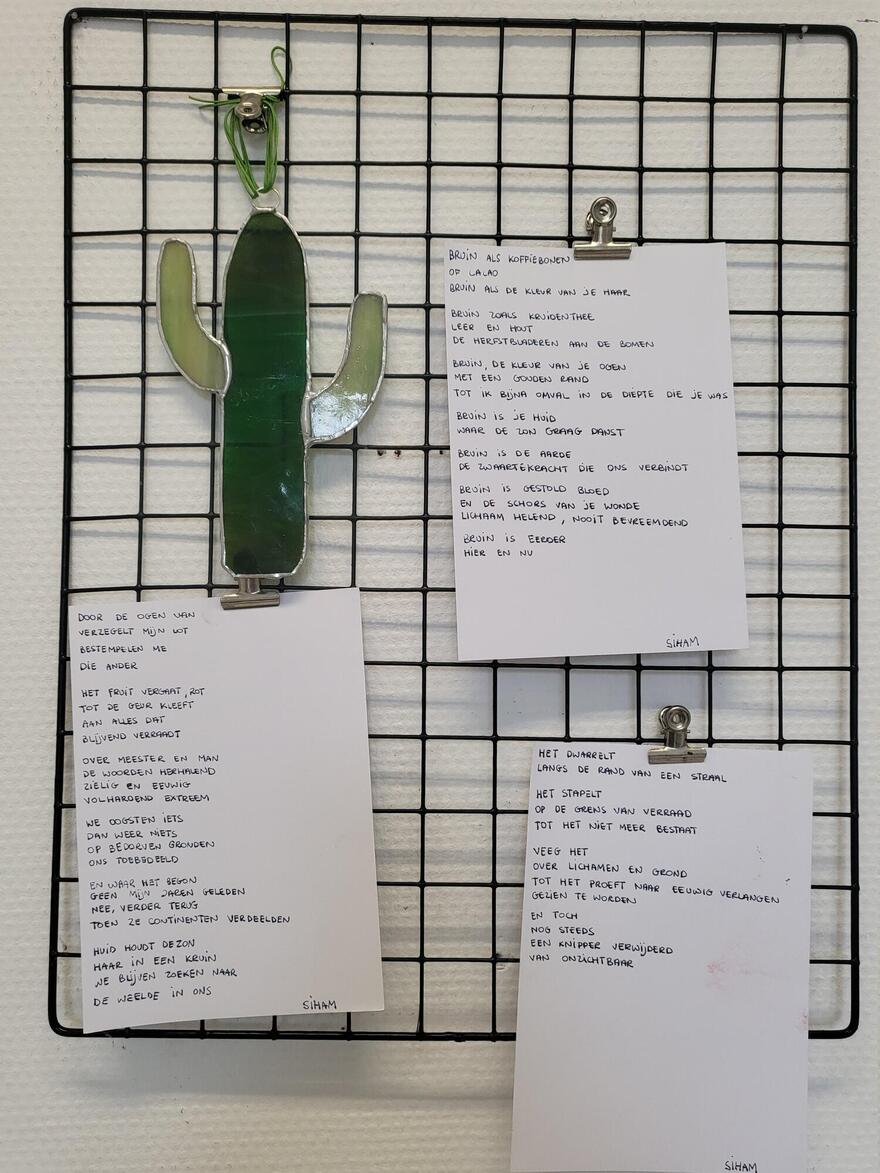 BRUIN ALS KOFFIEBONEN
OF CACAO
BRUIN ALS DE KLEUR VAN JE HAAR
BRUIN ZOALS KRUIDENTHEE
LEER EN HOUT
DE HERFSTBLADEREN AAN DE BOMEN
BRUIN, DE KLEUR VAN JE OGEN
MET EEN GOUDEN RAND
TOT IK BIJNA OMVAL IN DE DIEPTE DIE JE WAS
BRUIN IS JE HUID
WAAR DE ZON GRAAG DANST
BRUIN IS DE AARDE
DE ZWAARTEKRACHT DIE ONS VERBINDT
BRUIN IS GESTOLD BLOED
EN DE SCHORS VAN JE WONDE
LICHAAM HELEND, NOOIT BEVREEMDEND
BRUIN IS EERDER
HIER EN NU
SIHAM
DOOR DE OGEN VAN
VERZEGELT MIJN LOT
BESTEMPELEN ME
DIE ANDER
HET FRUIT VERGAAT, ROT
TOT DE GEUR KLEEFT
AAN ALLES DAT
BLIJVEND VERRAADT
OVER MEESTER EN MAN
DE WOORDEN HERHALEND
ZIELIG EN EEUWIG
VOLHARDEND EXTREEM
WE OOGSTEN IETS
DAN WEER NIETS
OP BEDORVEN GRONDEN
ONS TOEBEDEELD
EN WAAR HET BEGON
GEEN MIJN JAREN GELEDEN
NEE, VERDER TERUG
TOEN ZE CONTINENTEN VERDEELDEN
HUID HOUDT DE ZON
HAAR IN EEN KRUIN
WE BLIJVEN ZOEKEN NAAR
DE WEELDE IN ONS
SIHAM
HET DWARRELT
LANGS DE RAND VAN EEN STRAAL
HET STAPELT
OP DE GRENS VAN VERRAAD
TOT HET NIET MEER BESTAAT
VEEG HET
OVER LICHAMEN EN GROND
TOT HET PROEFT NAAR EEUWIG VERLANGEN
GEZIEN TE WORDEN
EN TOCH
NOG STEEDS
EEN KNIPPER VERWIJDERD
VAN ONZICHTBAAR
SIHAM